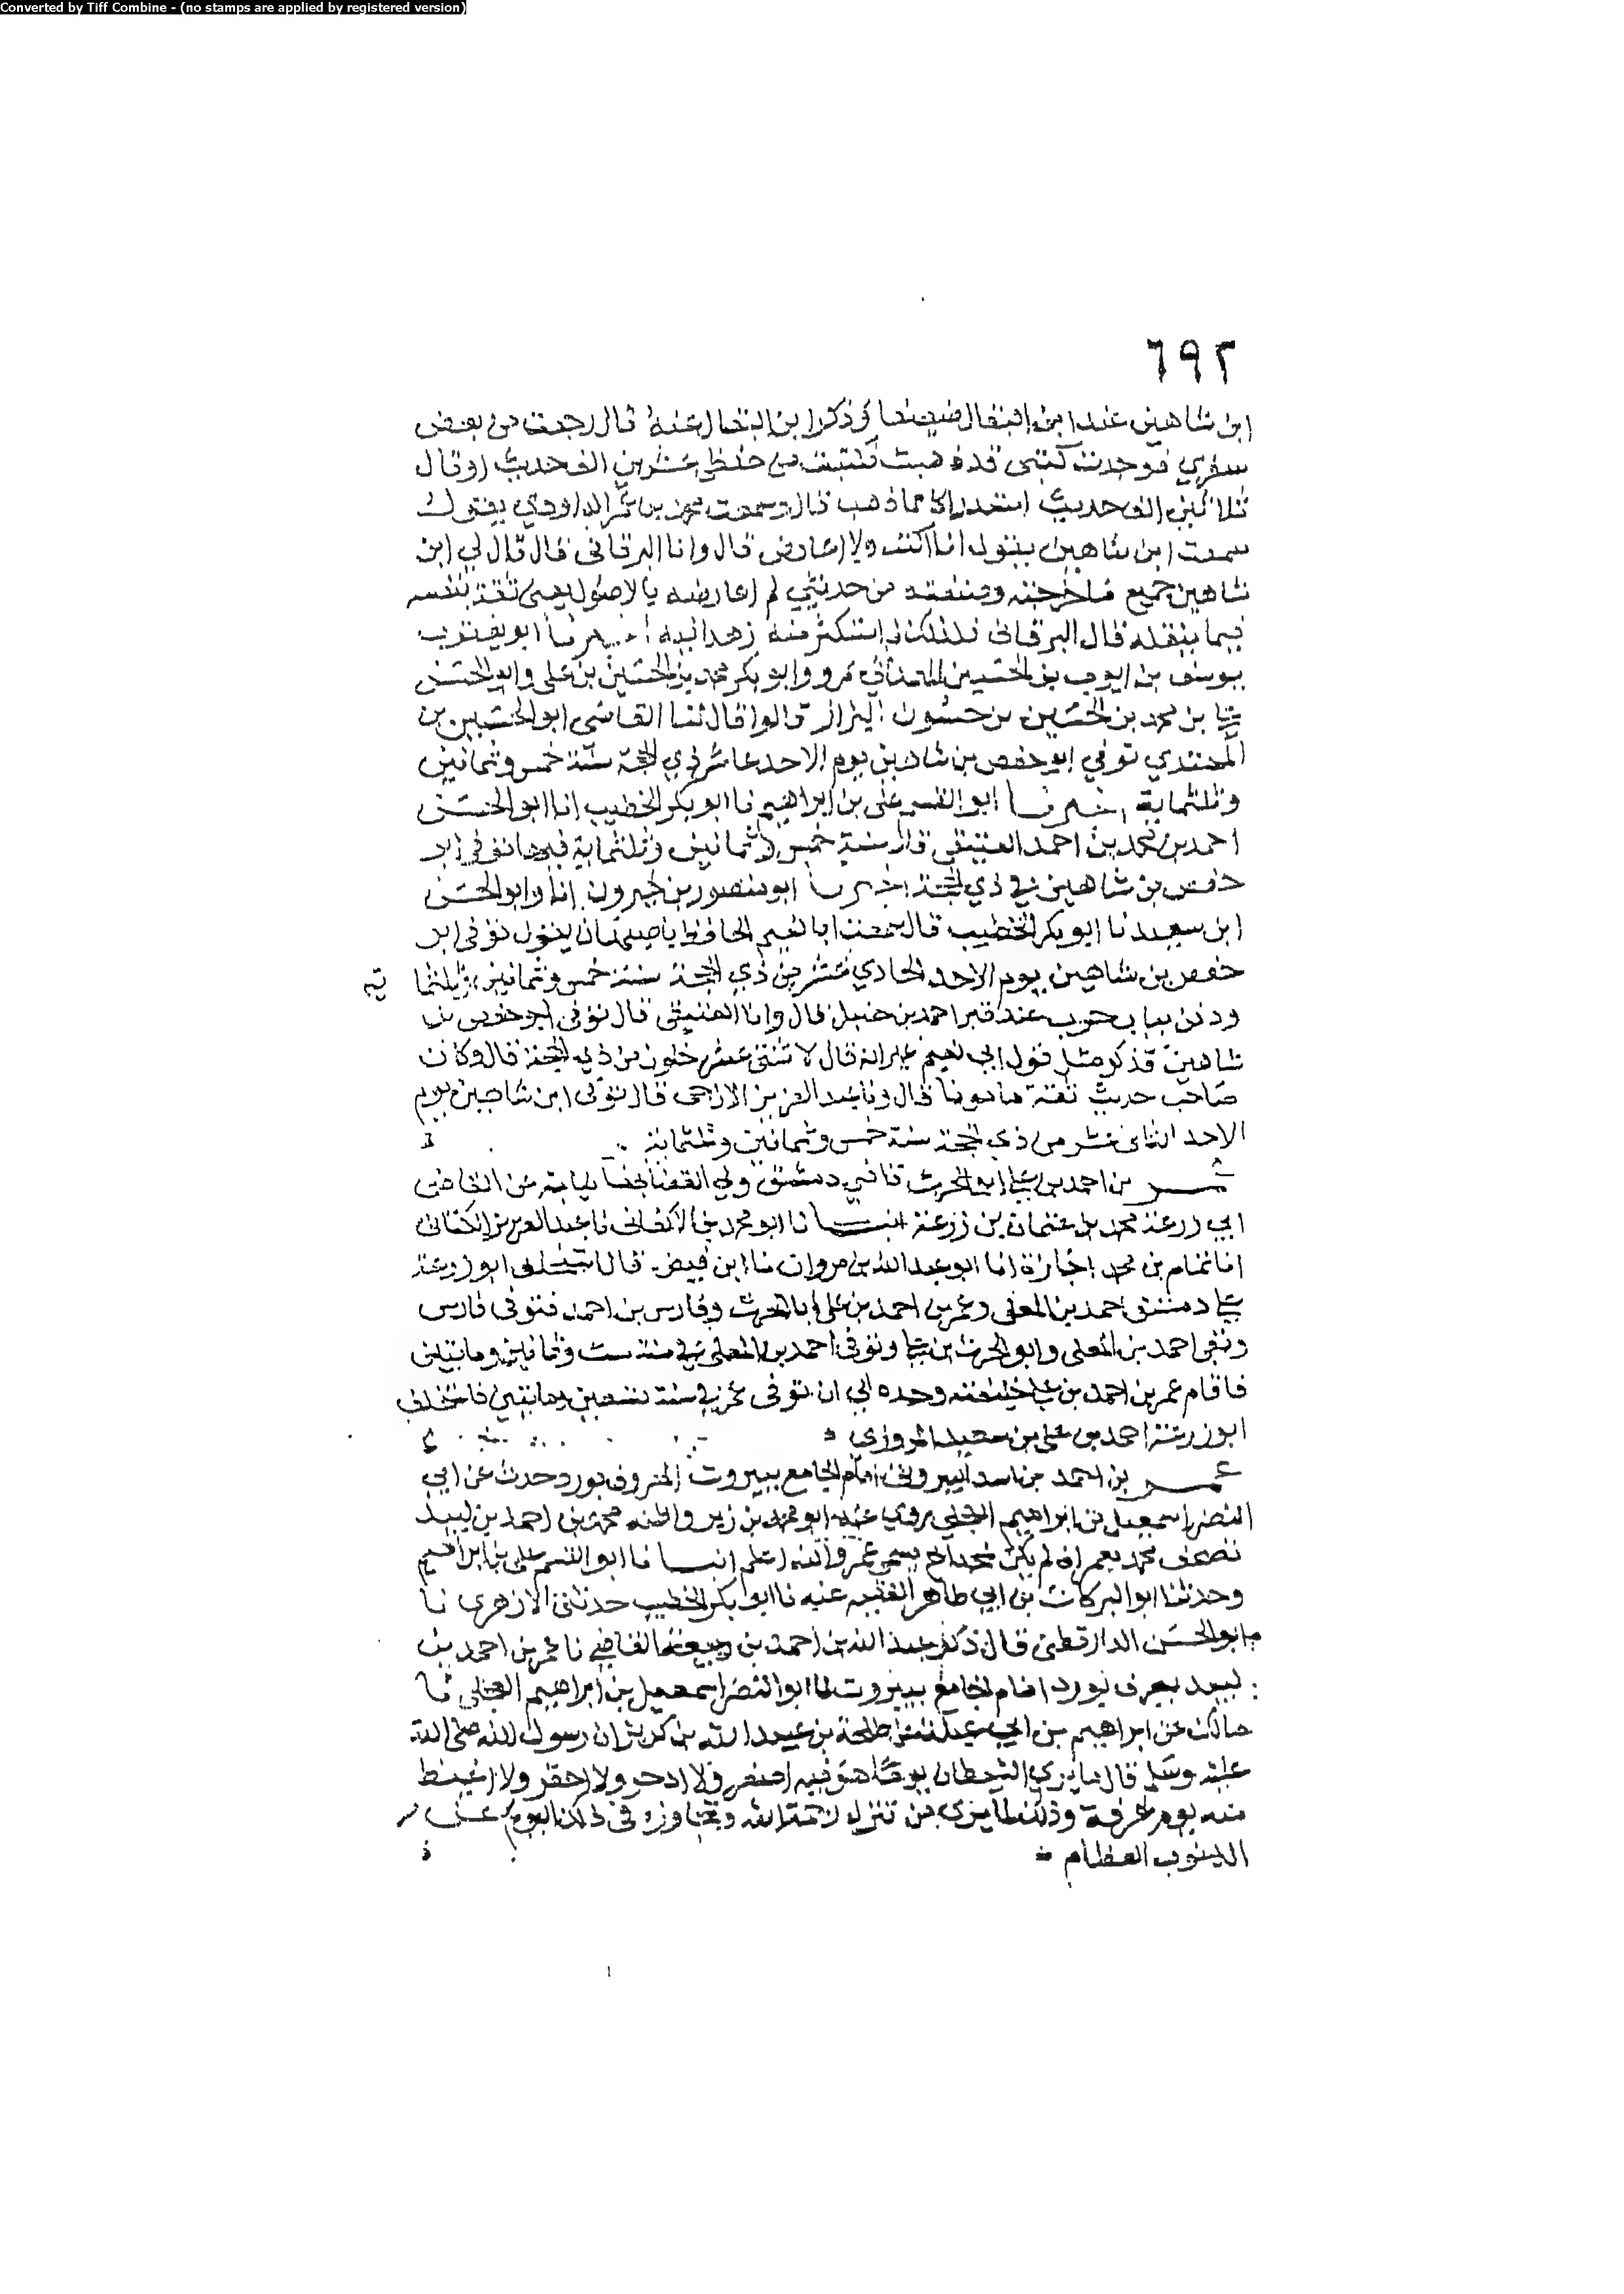 Converted by Tiff Combine - (no stamps are applied by registered version)
٦٩٢
ابن شاهين عند ابن البقال ضعيفا وذكر ابن البقال عنه قال رجعت من بعض
سفري فوجدت كتبي قد ذهبت فكتبت من حفظي عشرين الف حديث او قال
ثلاثين الف حديث استدراكا مما ذهب قال وسمعت محمد بن عمر الداودي يقول
سمعت ابن شاهين يقول انا اكتب ولا اعارض قال وانا البرقاني قال قال لي ابن
شاهين جميع ما خرجته وصنفته من حديثي لم اعارضه بالاصول يعني ثقة بنفسه
فيما ينقله قال البرقاني فلذلك لم استكثر منه زهدا فيه اخبرنا ابو يعقوب
يوسف بن ايوب بن الحسين الهمذاني بمرو وابو بكر محمد بن الحسين بن علي وابو الحسن
علي بن محمد بن الحسين بن حسون البزاز قالوا قال لنا القاضي ابو الحسين بن
المهتدي توفي ابو حفص بن شاهين يوم الاحد عاشر ذي الحجة سنة خمس وثمانين
وثلثماية اخبرنا ابو القسم علي بن ابراهيم نا ابو بكر الخطيب انا ابو الحسن
احمد بن محمد بن احمد العتيقي قال سنة خمس وثمانين وثلثماية فيها توفي ابو
حفص بن شاهين في ذي الحجة اخبرنا ابو منصور بن خيرون انا وابو الحسن
ابن سعيد نا ابو بكر الخطيب قال سمعت ابا نعيم الحافظ باصبهان يقول توفي ابو
حفص بن شاهين يوم الاحد الحادي عشر من ذي الحجة سنة خمس وثمانين وثلثما ية
ودفن بباب حرب عند قبر احمد بن حنبل قال وانا العتيقي قال توفي ابو حفص بن
شاهين فذكر مثل قول ابي نعيم غير انه قال لاثنتي عشر خلون من ذي الحجة قال وكان
صاحب حديث ثقة مامونا قال ونا عبد العزيز الازجي قال توفي ابن شاهين يوم
الاحد الثاني عشر من ذي الحجة سنة خمس وثمانين وثلثماية
عمر بن احمد بن علي ابو الحرث قاضي دمشق ولي القضا بها نيابة عن القاضي
ابي زرعة محمد بن عثمان بن زرعة انبانا ابو محمد بن الاكفاني نا عبد العزيز الكتاني
انا تمام بن محمد اجازة انا ابو عبد الله بن مروان نا ابن فيض قال استخلف ابو زرعة
علي دمشق احمد بن المعلي وعمر بن احمد بن علي ابا الحرث وفارس بن احمد فتوفي فارس
وبقي احمد بن المعلي وابو الحرث بن علي وتوفي احمد بن المعلي في سنة ست وثمانين ومايتين
فاقام عمر بن احمد بن علي خليفته وحده الي ان توفي عمر في سنة تسعين ومايتين فاستخلف
ابو زرعة احمد بن علي بن سعيد المروزي
عمر بن احمد بن اسد البيروتي امام الجامع ببيروت المعروف بورد حدث عن ابي
النضر اسمعيل بن ابراهيم العجلي روي عنه ابو محمد بن زبر واظنه محمد بن احمد بن لبيد
تصحف محمد بعمر ان لم يكن له اخ يسمي عمر والله اعلم انبانا ابو القسم علي بن ابراهيم
وحدثنا ابو البركات بن ابي طاهر الفقيه عنه نا ابو بكر الخطيب حدثني الازهري نا
ابو الحسن الدارقطني قال ذكر عبد الله بن احمد بن ربيعة القاضي نا عمر بن احمد بن
لبيد يعرف بورد امام الجامع ببيروت نا ابو النضر اسمعيل بن ابراهيم العجلي نا
مالك عن ابراهيم بن ابي عبلة عن طلحة بن عبيد الله بن كريز ان رسول الله صلي الله
عليه وسلم قال ما رؤي الشيطان يوما هو فيه اصغر ولا ادحر ولا احقر ولا اغيظ
منه يوم عرفة وذلك لما يري من تنزل رحمة الله وتجاوزه في ذلك اليوم عن
الذنوب العظام